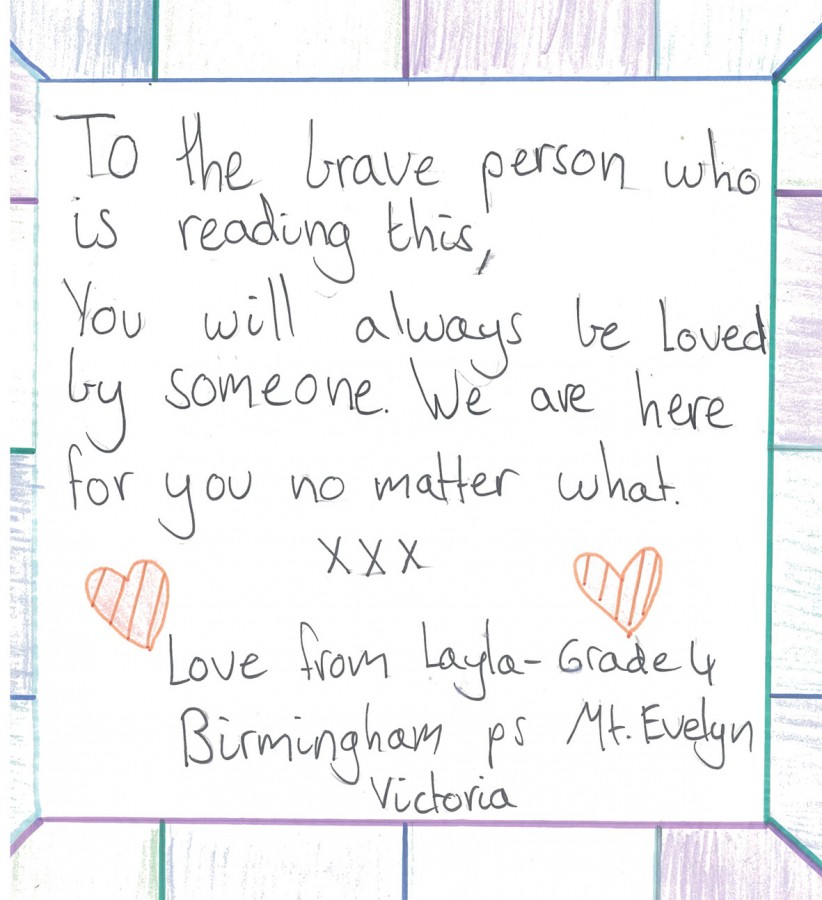 To the brave person who
is reading this,
You will always be Loved
by someone. We are here
for you no matter what.
XXX
Love from Layla- Grade 4
Birmingham ps Mt. Evelyn
Victoria